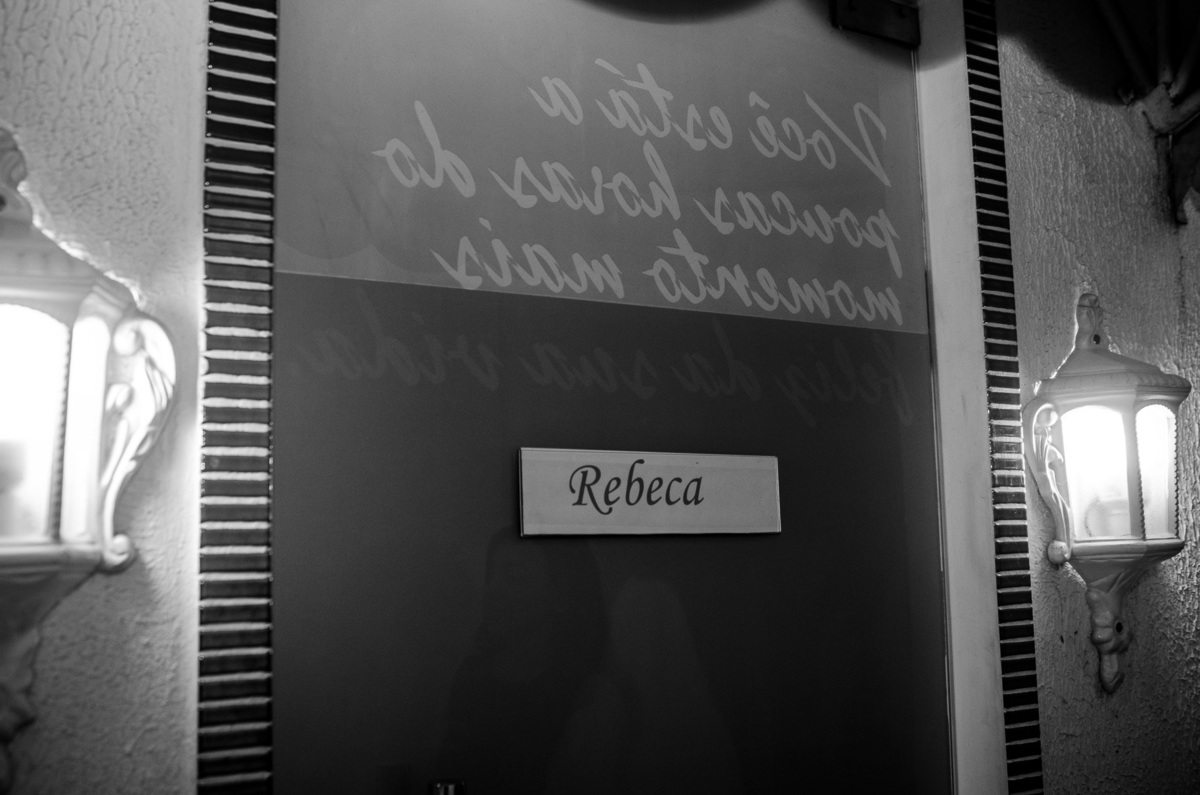 Você está a
poucas horas do
momento mais
feliz da sua vida.
Rebeca